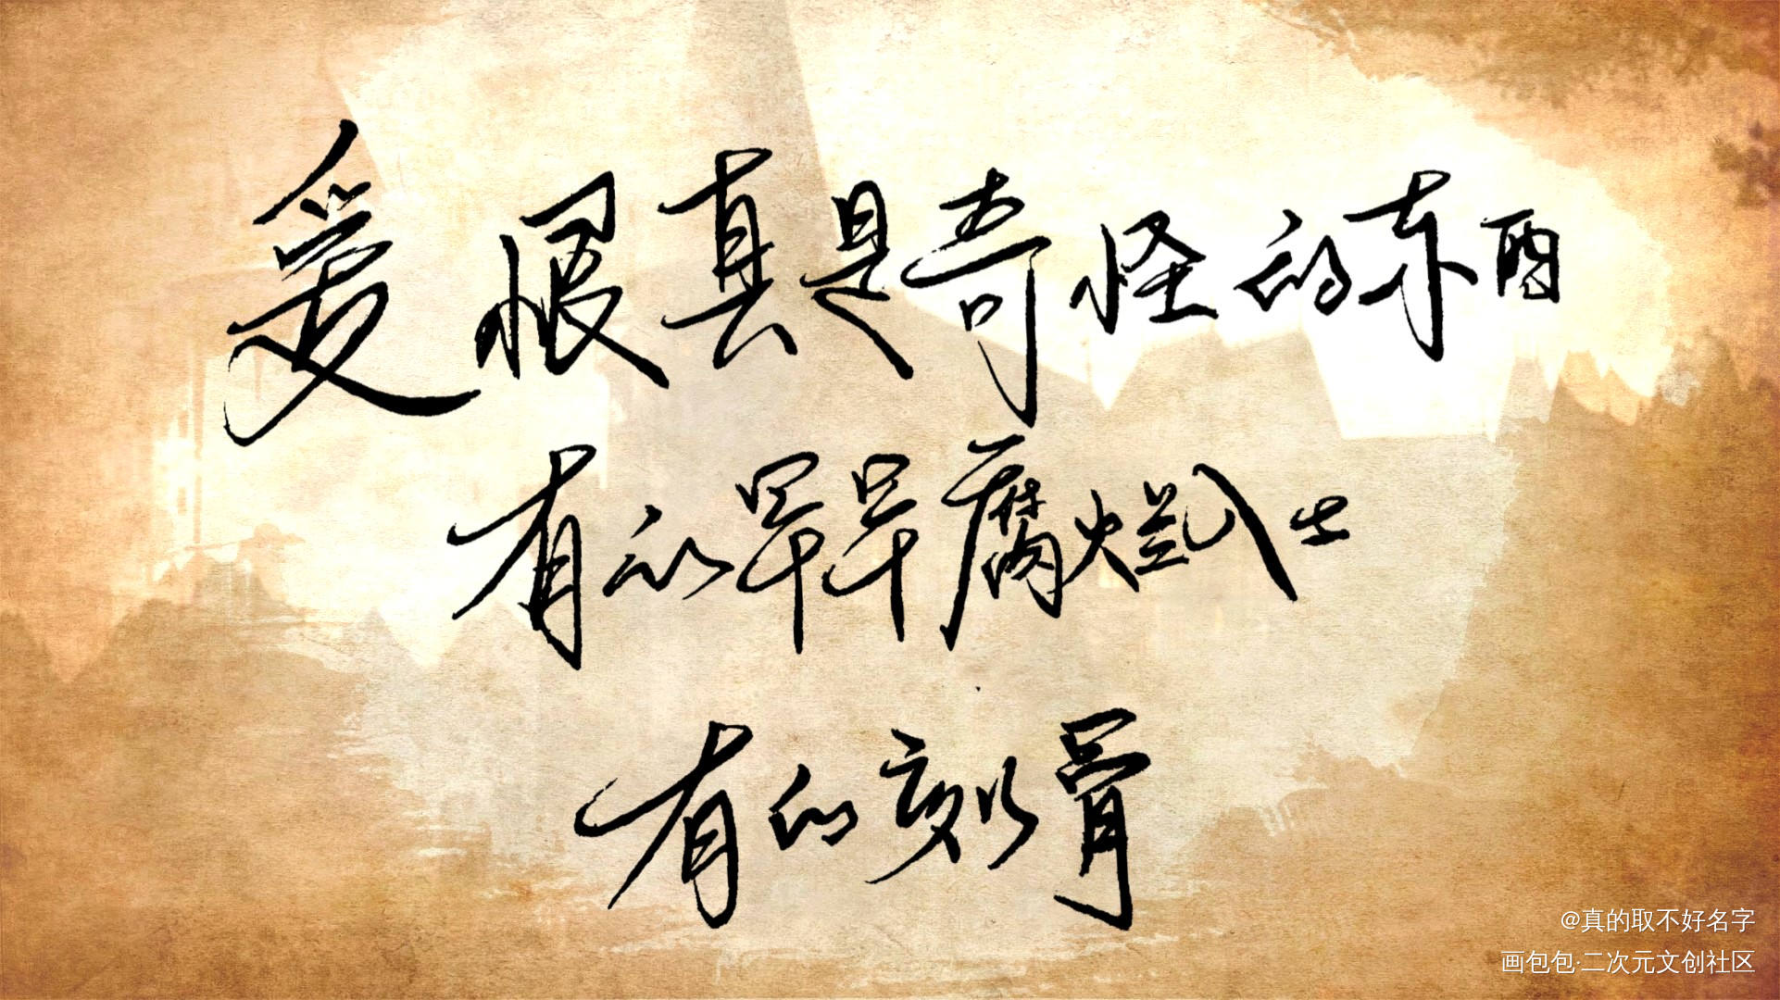 爱恨真是奇怪的东西
有的早早腐烂入土
有的刻骨
@真的取不好名字
画包包·二次元文创社区